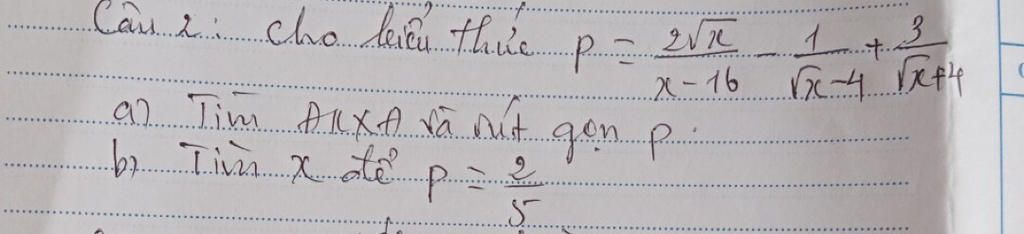 Câu 2: Cho biểu thức P = 2√x/(x-16) - 1/(√x-4) + 3/(√x+4)
a) Tìm ĐKXĐ và rút gọn P.
b) Tìm x để P = 2/5